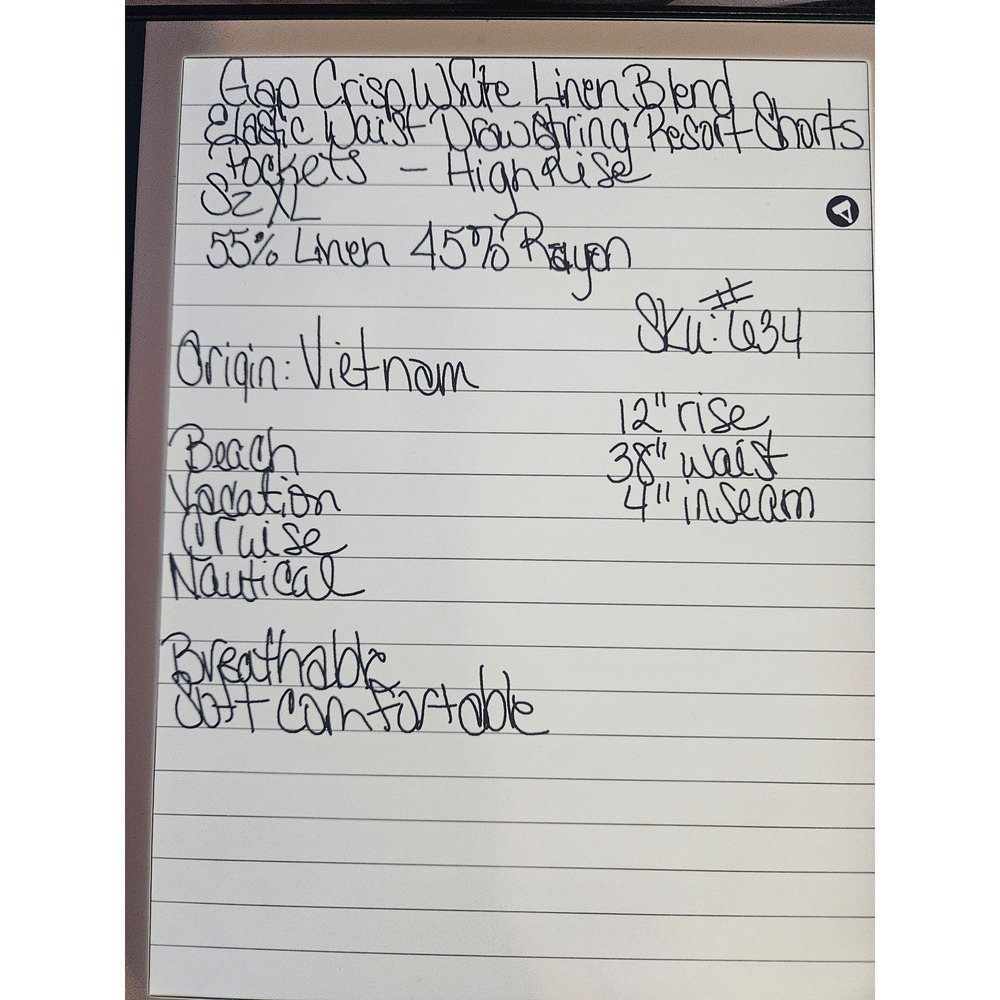 Gap Crisp White Linen Blend
Elastic Waist Drawstring Resort Shorts
Pockets - High Rise
Sz XL
55% Linen 45% Rayon
#
Sku: 634
Origin: Vietnam
12" rise
38" waist
4" inseam
Beach
Vacation
Cruise
Nautical
Breathable
Soft comfortable